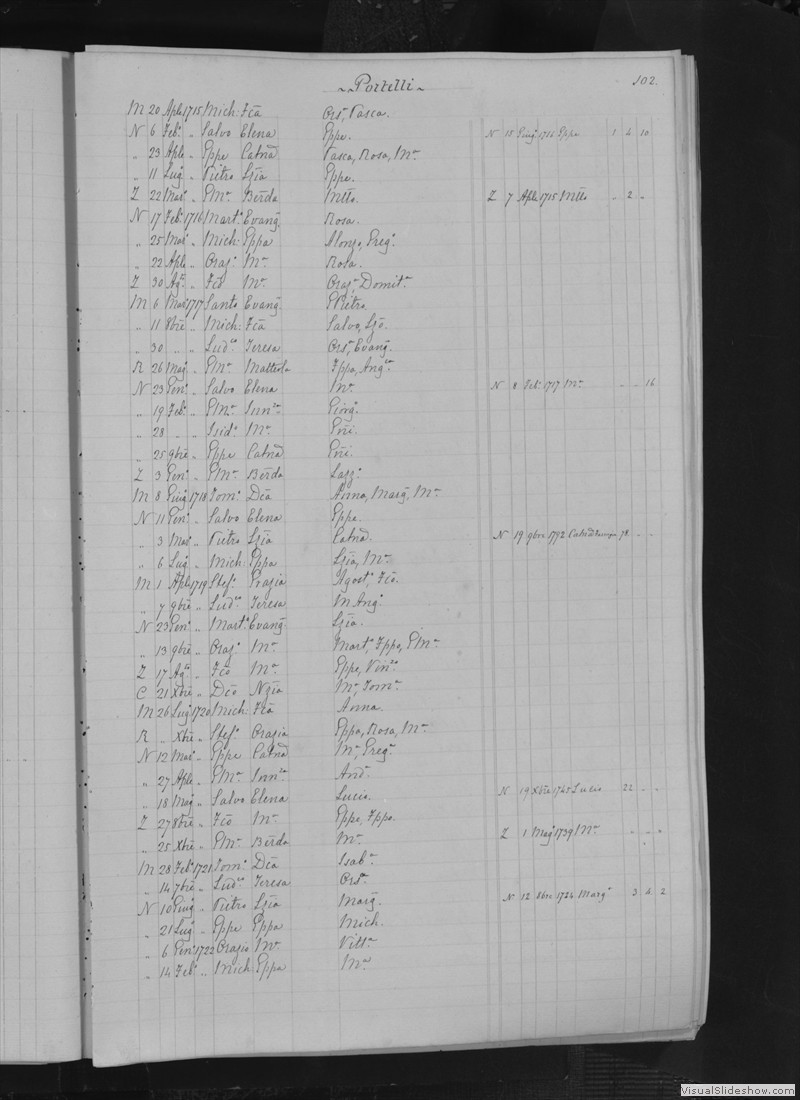 ~ Portelli ~ 102.
M 20 Aple 1715 Mich: Fcã Ors.ª, Pasca.
N 6 Feb.º „ Salvo Elena Gppe. N 15 Giug.º 1716 Gppe 1 4 10
„ 23 Aple „ Gppe Catnã Pasca, Rosa, M.ª
„ 11 Lug.º „ Pietro Lzia Gppe.
Z 22 Mar.º „ GM.ª Berda Mtto. Z 7 Aple 1715 Mtto „ 2 „
N 17 Feb.º 1716 Mart.º Evang. Rosa.
„ 25 Mar.º „ Mich: Gppa Alonzo, Greg.º
„ 22 Aple „ Oraz.º M.ª Rosa.
Z 30 Ag.to „ Fcõ M.ª Oraz.º, Domit.ª
M 6 Mar.º 1717 Santo Evang. Pietro.
„ 11 8bre „ Mich: Fcã Salvo, Lzo.
„ 30 „ „ Lud.co Teresa Ors.ª, Evang.
R 26 Mag.º „ GM.ª Mattiola Fppa, Ang.ca
N 23 Gen.º „ Salvo Elena M.ª N 8 Feb.º 1717 M.ª - - 16
„ 19 Feb.º „ GM.ª Inn.za Giorg.º
„ 28 „ „ Isid.º M.ª Gni.
„ 25 9bre „ Gppe Catnã Gni.
Z 3 Gen.º „ GM.ª Berda
M 8 Giug.º 1718 Tom.º Dcã Anna, Marg., M.ª
N 11 Gen.º „ Salvo Elena Gppe.
„ 3 Mar.º „ Pietro Lzia Catnã. N 19 9bre 1792 Catnã 78 - -
„ 6 Lug.º „ Mich: Gppa Lzia, M.ª
M 1 Aple 1719 Stef.º Grazia Agost.º, Fcõ.
„ 7 9bre „ Lud.co Teresa M Ang.º
N 23 Gen.º „ Mart.º Evang. Lzia.
„ 13 9bre „ Oraz.º M.ª Mart.º, Fppo, GM.ª
Z 17 Ag.to „ Fcõ M.ª Gppe, Vin.zo
C 21 Xbre „ Dcõ Nzia M.ª, Tom.ª
M 26 Lug.º 1720 Mich: Fcã Anna.
R „ Xbre „ Stef.º Orazia Gppa, Rosa, M.ª
N 12 Mar.º „ Gppe Catnã M.ª, Greg.ª
„ 27 Aple „ GM.ª Inn.za And.ª
„ 18 Mag.º „ Salvo Elena Lucio. N 19 Xbre 1745 Lucio 22 - -
Z 27 8bre „ Fcõ M.ª Gppe, Fppo.
„ 25 Xbre „ GM.ª Berda M.ª Z 1 Mag.º 1739 M.ª „ „ „
M 28 Feb.º 1721 Tom.º Dcã Isab.ª
„ 14 7bre „ Lud.co Teresa Ors.ª
N 10 Giug.º „ Pietro Lzia Marg. N 12 8bre 1724 Marg.ª 3 4 2
„ 21 Lug.º „ Gppe Gppa Mich.
„ 6 Gen.º 1722 Orazio M.ª Vitt.ª
„ 14 Feb.º „ Mich: Gppa M.ª
VisualSlideshow.com